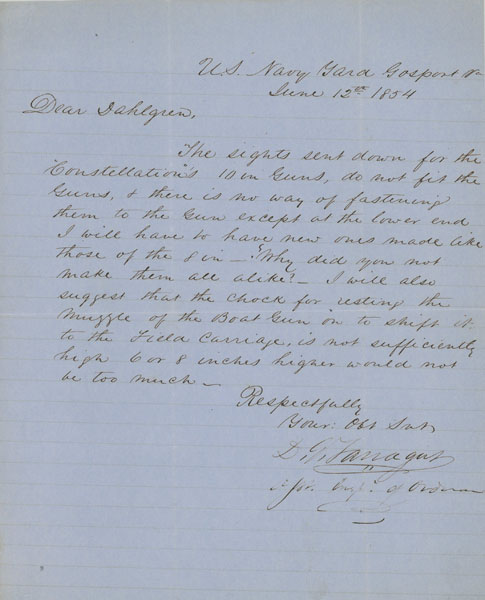 U.S. Navy Yard Gosport Va
June 12th 1854
Dear Dahlgren,
The sights sent down for the
"Constellation's" 10 in Guns, do not fit the
Guns, & there is no way of fastening
them to the Gun except at the lower end
I will have to have new ones made like
those of the 8 in — Why did you not
make them all alike? — I will also
suggest that the chock for resting the
Muzzle of the Boat Gun on to shift it
to the Field Carriage, is not sufficiently
high 6 or 8 inches higher would not
be too much —
Respectfully
Your: Obt Svt
D. G. Farragut
of Ordnan